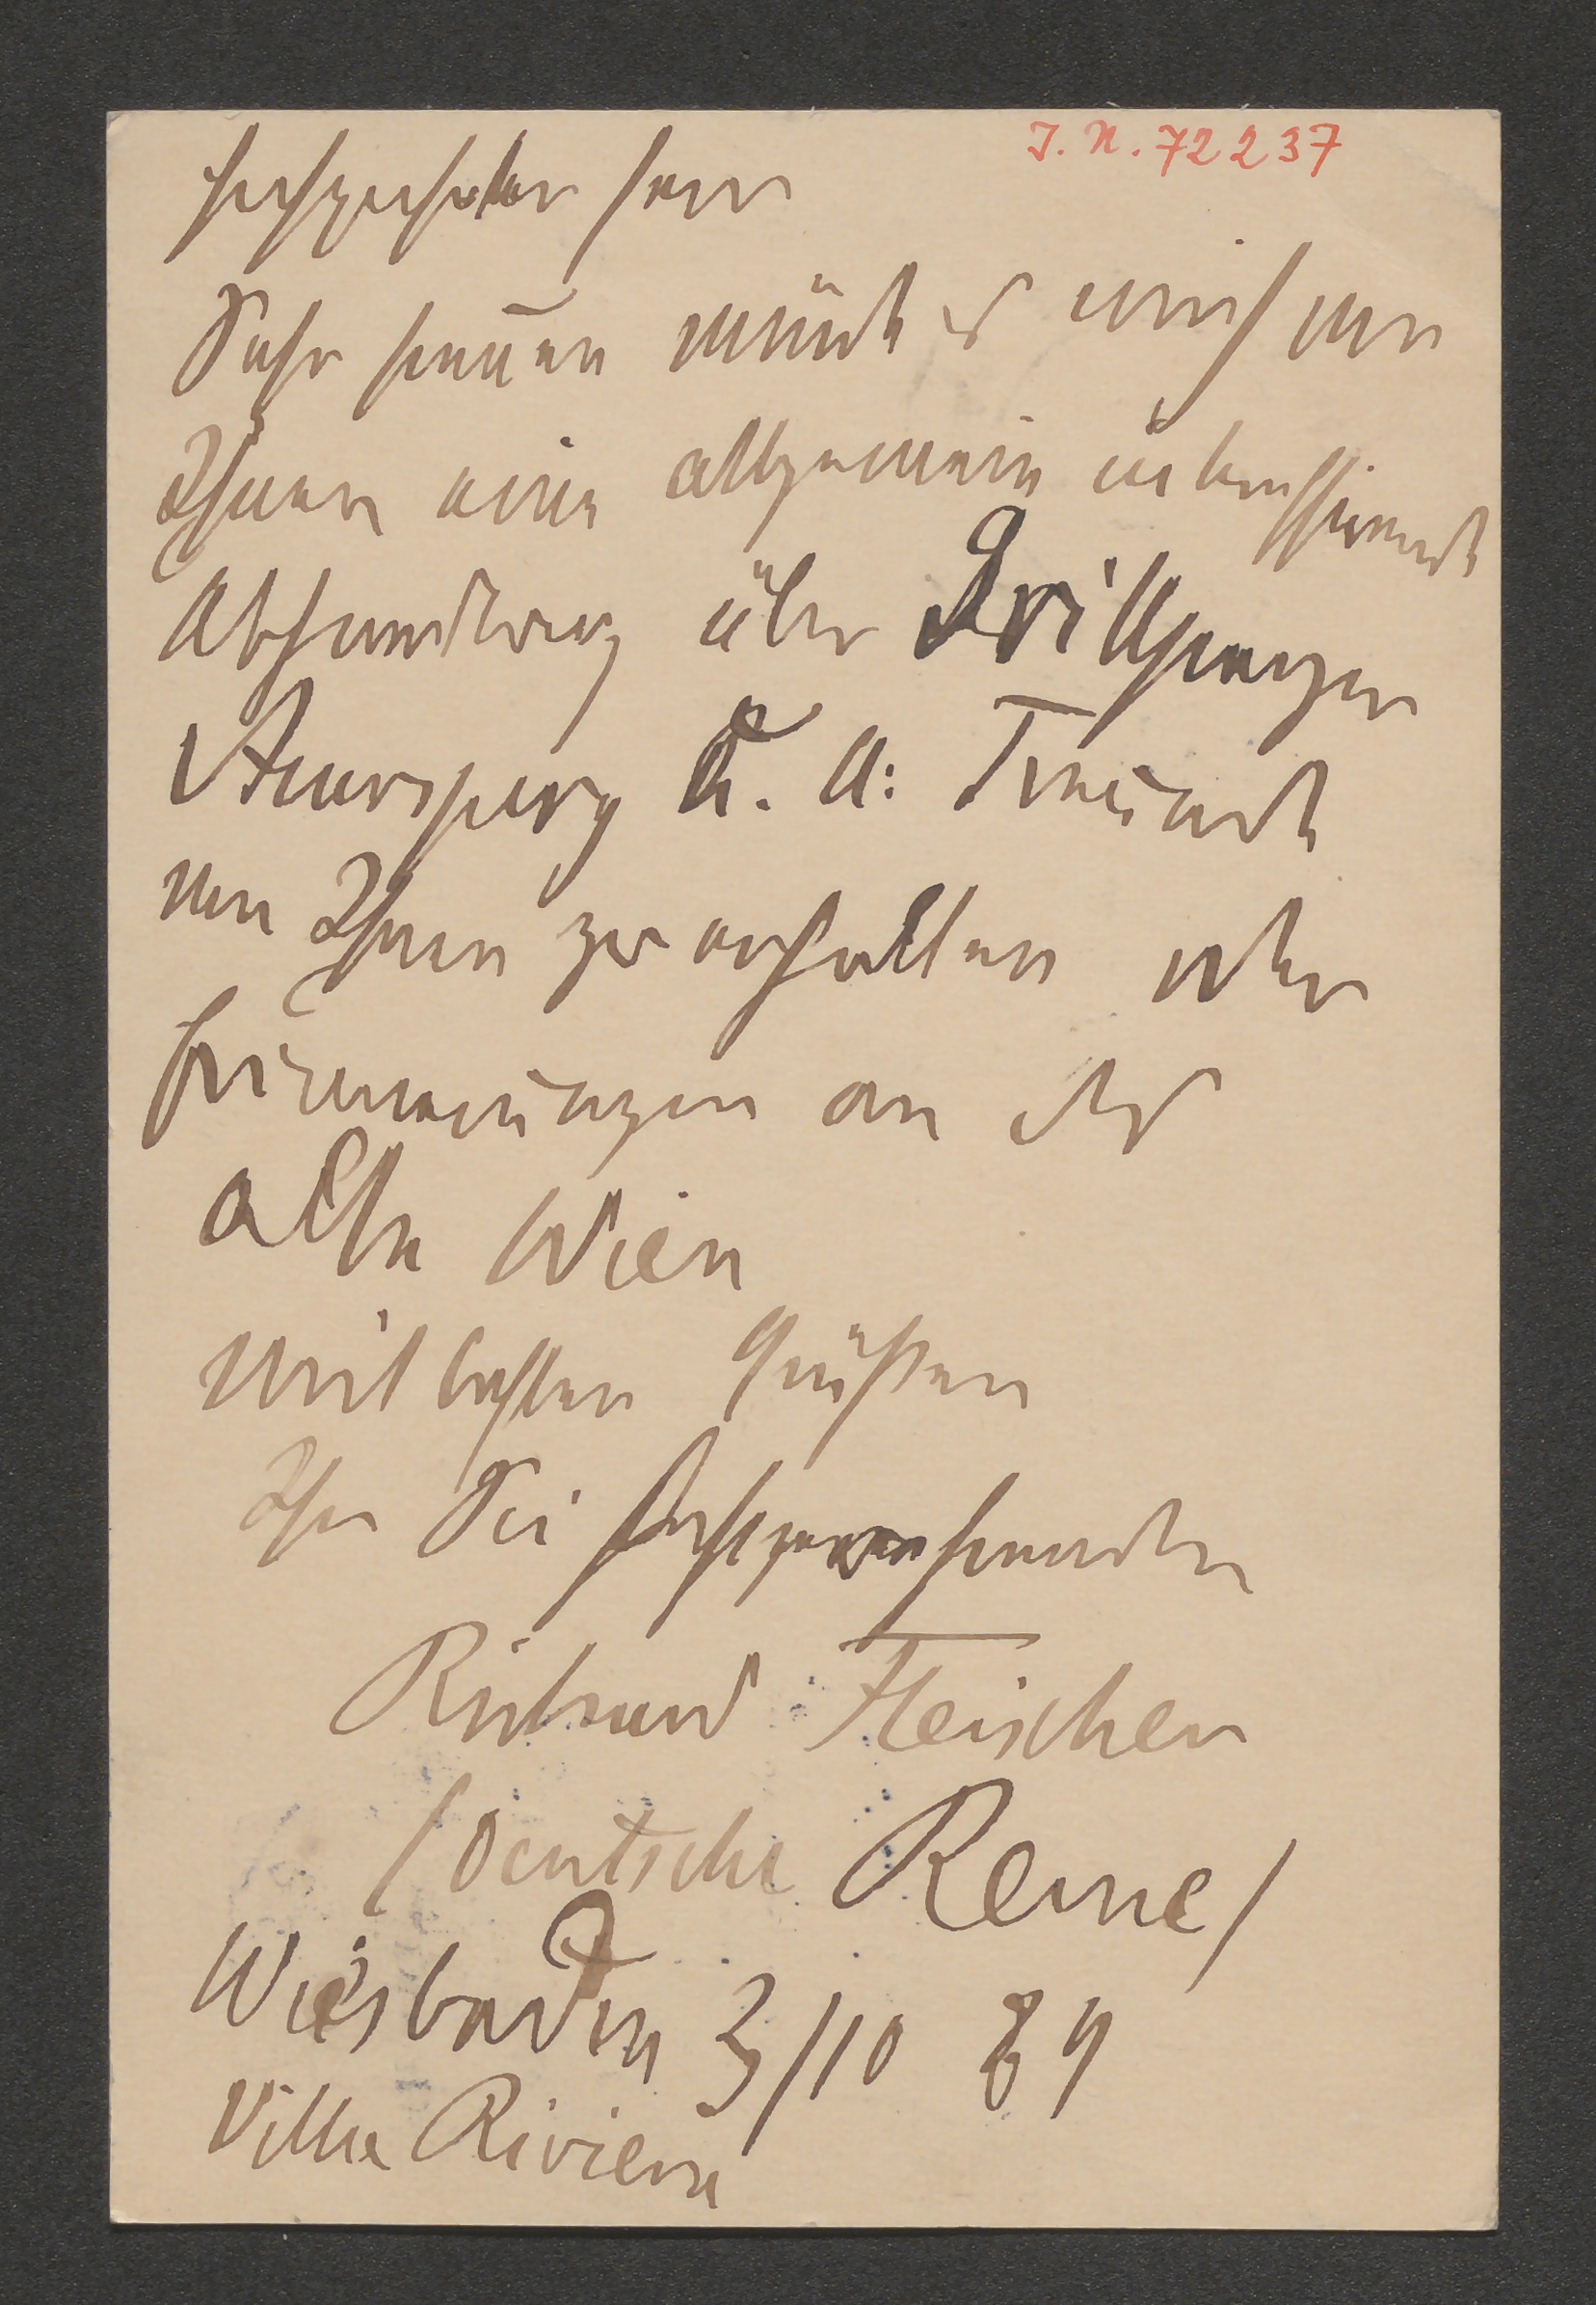 I. N. 72237
Hochgeehrter Herr
Sehr freuen würde es mich von
Ihnen eine allgemein interessirende
Abhandlung über Grillparzer
Auersperg u. a: Freunde
von Ihnen zu erhalten oder
Erinnerungen an das
alte Wien
Mit besten Grüßen
Ihr Sie hochverehrender
Richard Fleischer
/Deutsche Revue/
Wiesbaden 3/10 89
Villa Riviera